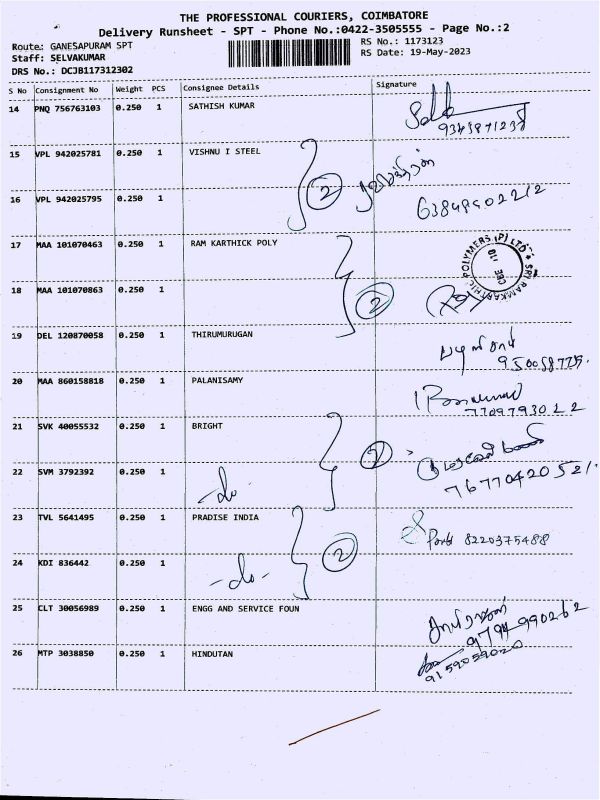 THE PROFESSIONAL COURIERS, COIMBATORE
Delivery Runsheet - SPT - Phone No.:0422-3505555 - Page No.:2
Route: GANESAPURAM SPT RS No.: 1173123
Staff: SELVAKUMAR RS Date: 19-May-2023
DRS No.: DCJB117312302
S No Consignment No Weight PCS Consignee Details Signature
14 PNQ 756763103 0.250 1 SATHISH KUMAR
15 VPL 942025781 0.250 1 VISHNU I STEEL
2
16 VPL 942025795 0.250 1
17 MAA 101070463 0.250 1 RAM KARTHICK POLY
SRI RAMKARTHIC POLYMERS (P) LTD
18 MAA 101070863 0.250 1 2
19 DEL 120870058 0.250 1 THIRUMURUGAN
20 MAA 860158818 0.250 1 PALANISAMY
21 SVK 40055532 0.250 1 BRIGHT
2
22 SVM 3792392 0.250 1 -do- 7677042052
23 TVL 5641495 0.250 1 PRADISE INDIA 8220375488
2
24 KDI 836442 0.250 1 -do-
25 CLT 30056989 0.250 1 ENGG AND SERVICE FOUN
9794990262
26 MTP 3038850 0.250 1 HINDUTAN
9159059020